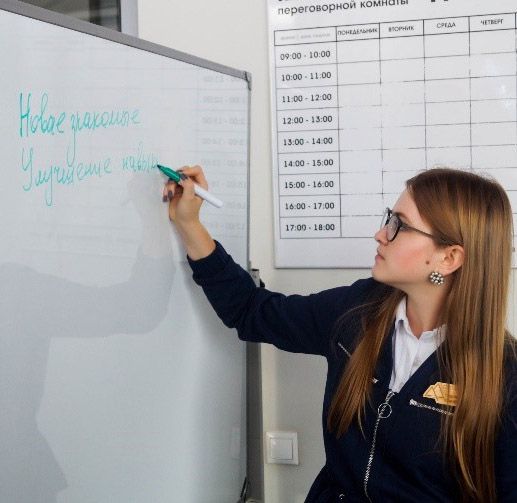 переговорной комнаты
ПОНЕДЕЛЬНИК ВТОРНИК СРЕДА ЧЕТВЕРГ
09:00 - 10:00
10:00 - 11:00
11:00 - 12:00
12:00 - 13:00
13:00 - 14:00
14:00 - 15:00
15:00 - 16:00
16:00 - 17:00
17:00 - 18:00
Новое знакомые
Улучшение навык